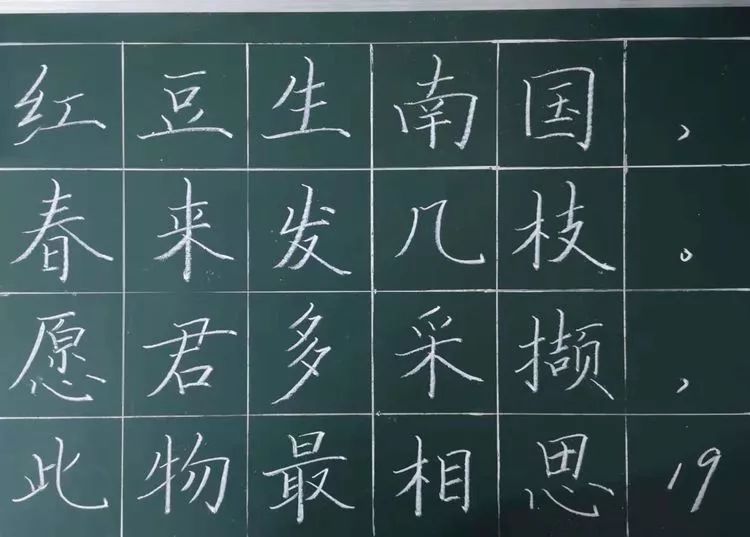 红豆生南国，
春来发几枝。
愿君多采撷，
此物最相思 19